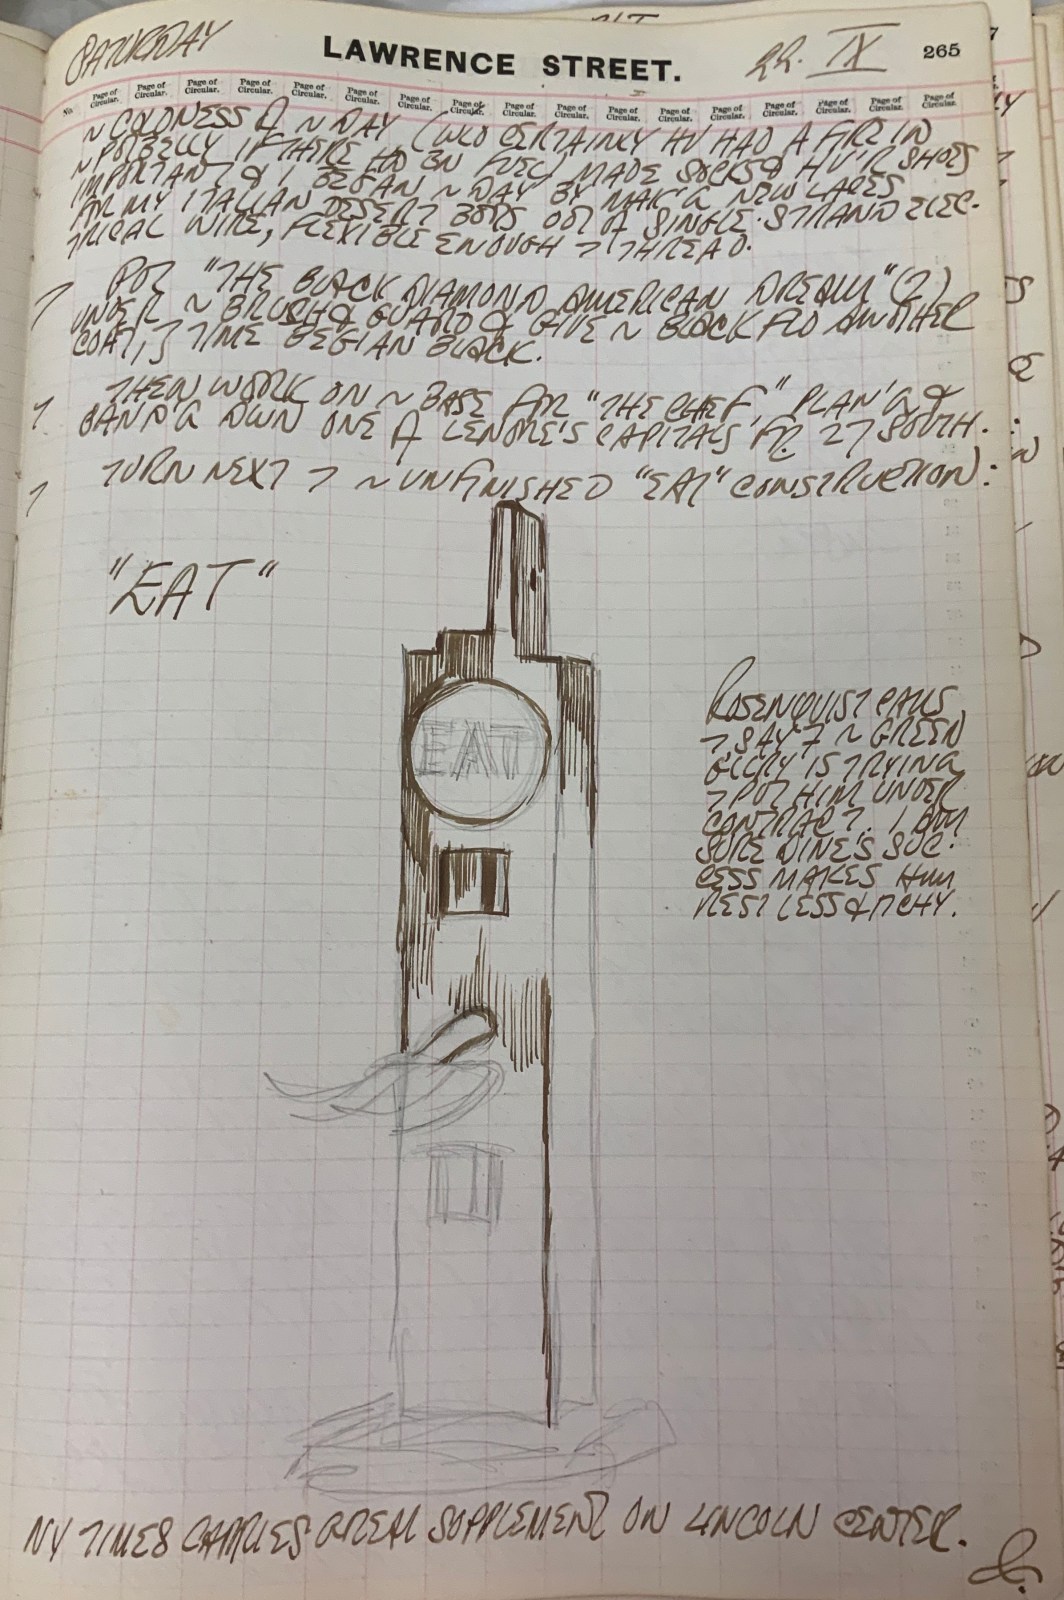 SATURDAY
LAWRENCE STREET.
22. IX
265
No. Page of Circular. Page of Circular. Page of Circular. Page of Circular. Page of Circular. Page of Circular. Page of Circular. Page of Circular. Page of Circular. Page of Circular. Page of Circular. Page of Circular. Page of Circular. Page of Circular. Page of Circular. Page of Circular. Page of Circular.
~ COLDNESS OF ~ DAY (WLD CERTAINLY HV HAD A FIRE IN
~ POTBELLY IF THERE HD BN FUEL) MADE SOCKS & HV'R SHOES
IMPORTANT & I BEGAN ~ DAY BY MAK'G NEW LACES
FOR MY ITALIAN DESERT BOOTS OUT OF SINGLE-STRAND ELEC-
TRICAL WIRE, FLEXIBLE ENOUGH 7 THREAD.
PUT "THE BLACK DIAMOND AMERICAN DREAM" (2)
UNDER ~ BRUSH & GUARD & GIVE ~ BLACK FLD ANOTHER
COAT, 7 TIME BEGIAN BLACK.
THEN WORK ON ~ BASE FOR "THE CHEF," PLAN'G &
SAND'G DWN ONE OF LENORE'S CAPITALS FR. 27 SOUTH.
TURN NEXT 7 ~ UNFINISHED "EAT" CONSTRUCTION:
"EAT"
EAT
ROSENQUIST CALLS
7 SAY 7 ~ GREEN
GLLRY IS TRYING
7 PUT HIM UNDER
CONTRACT. I AM
SURE DINE'S SUC-
CESS MAKES HIM
RESTLESS & ITCHY.
NY TIMES CARRIES GREAT SUPPLEMENT ON LINCOLN CENTER.